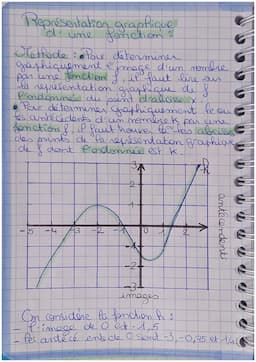 Représentation graphique
d'une fonction :
Méthode : • Pour déterminer
graphiquement l'image d'un nombre
par une fonction f, il faut lire sur
la représentation graphique de f
l'ordonnée du point d'abscisse
• Pour déterminer graphiquement le ou
les antécédents d'un nombre k par une
fonction f, il faut trouver les abscisses
des points de la représentation graphique
de f dont l'ordonnée est k.
3
2
1
-5 -4 -3 -2 -1 0 1 2
-1
-2
-3
antécédents
images
On considère la fonction h :
- l'image de 0 est -1,5
- les antécédents de 0 sont -3, -0,95 et